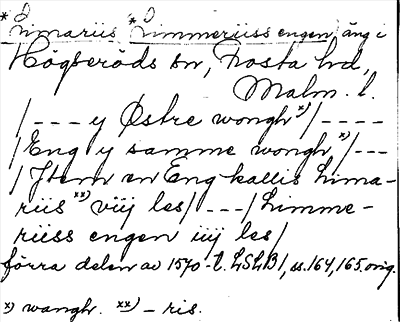 *Limariis *Limmeriiss engen, äng i
Högseröds sn, Frosta hd,
Malm. l.
/ - - - y Østre wongh x) / - - - -
/ Eng y samme wongh x) / - - -
/ Jtem en Eng kallis Lima-
riis xx) viij les / - - - / Limme-
riiss engen iiij les /
förra delen av 1570-t. LSLB 1, ss. 164, 165. orig.
x) wangh. xx) - ris.